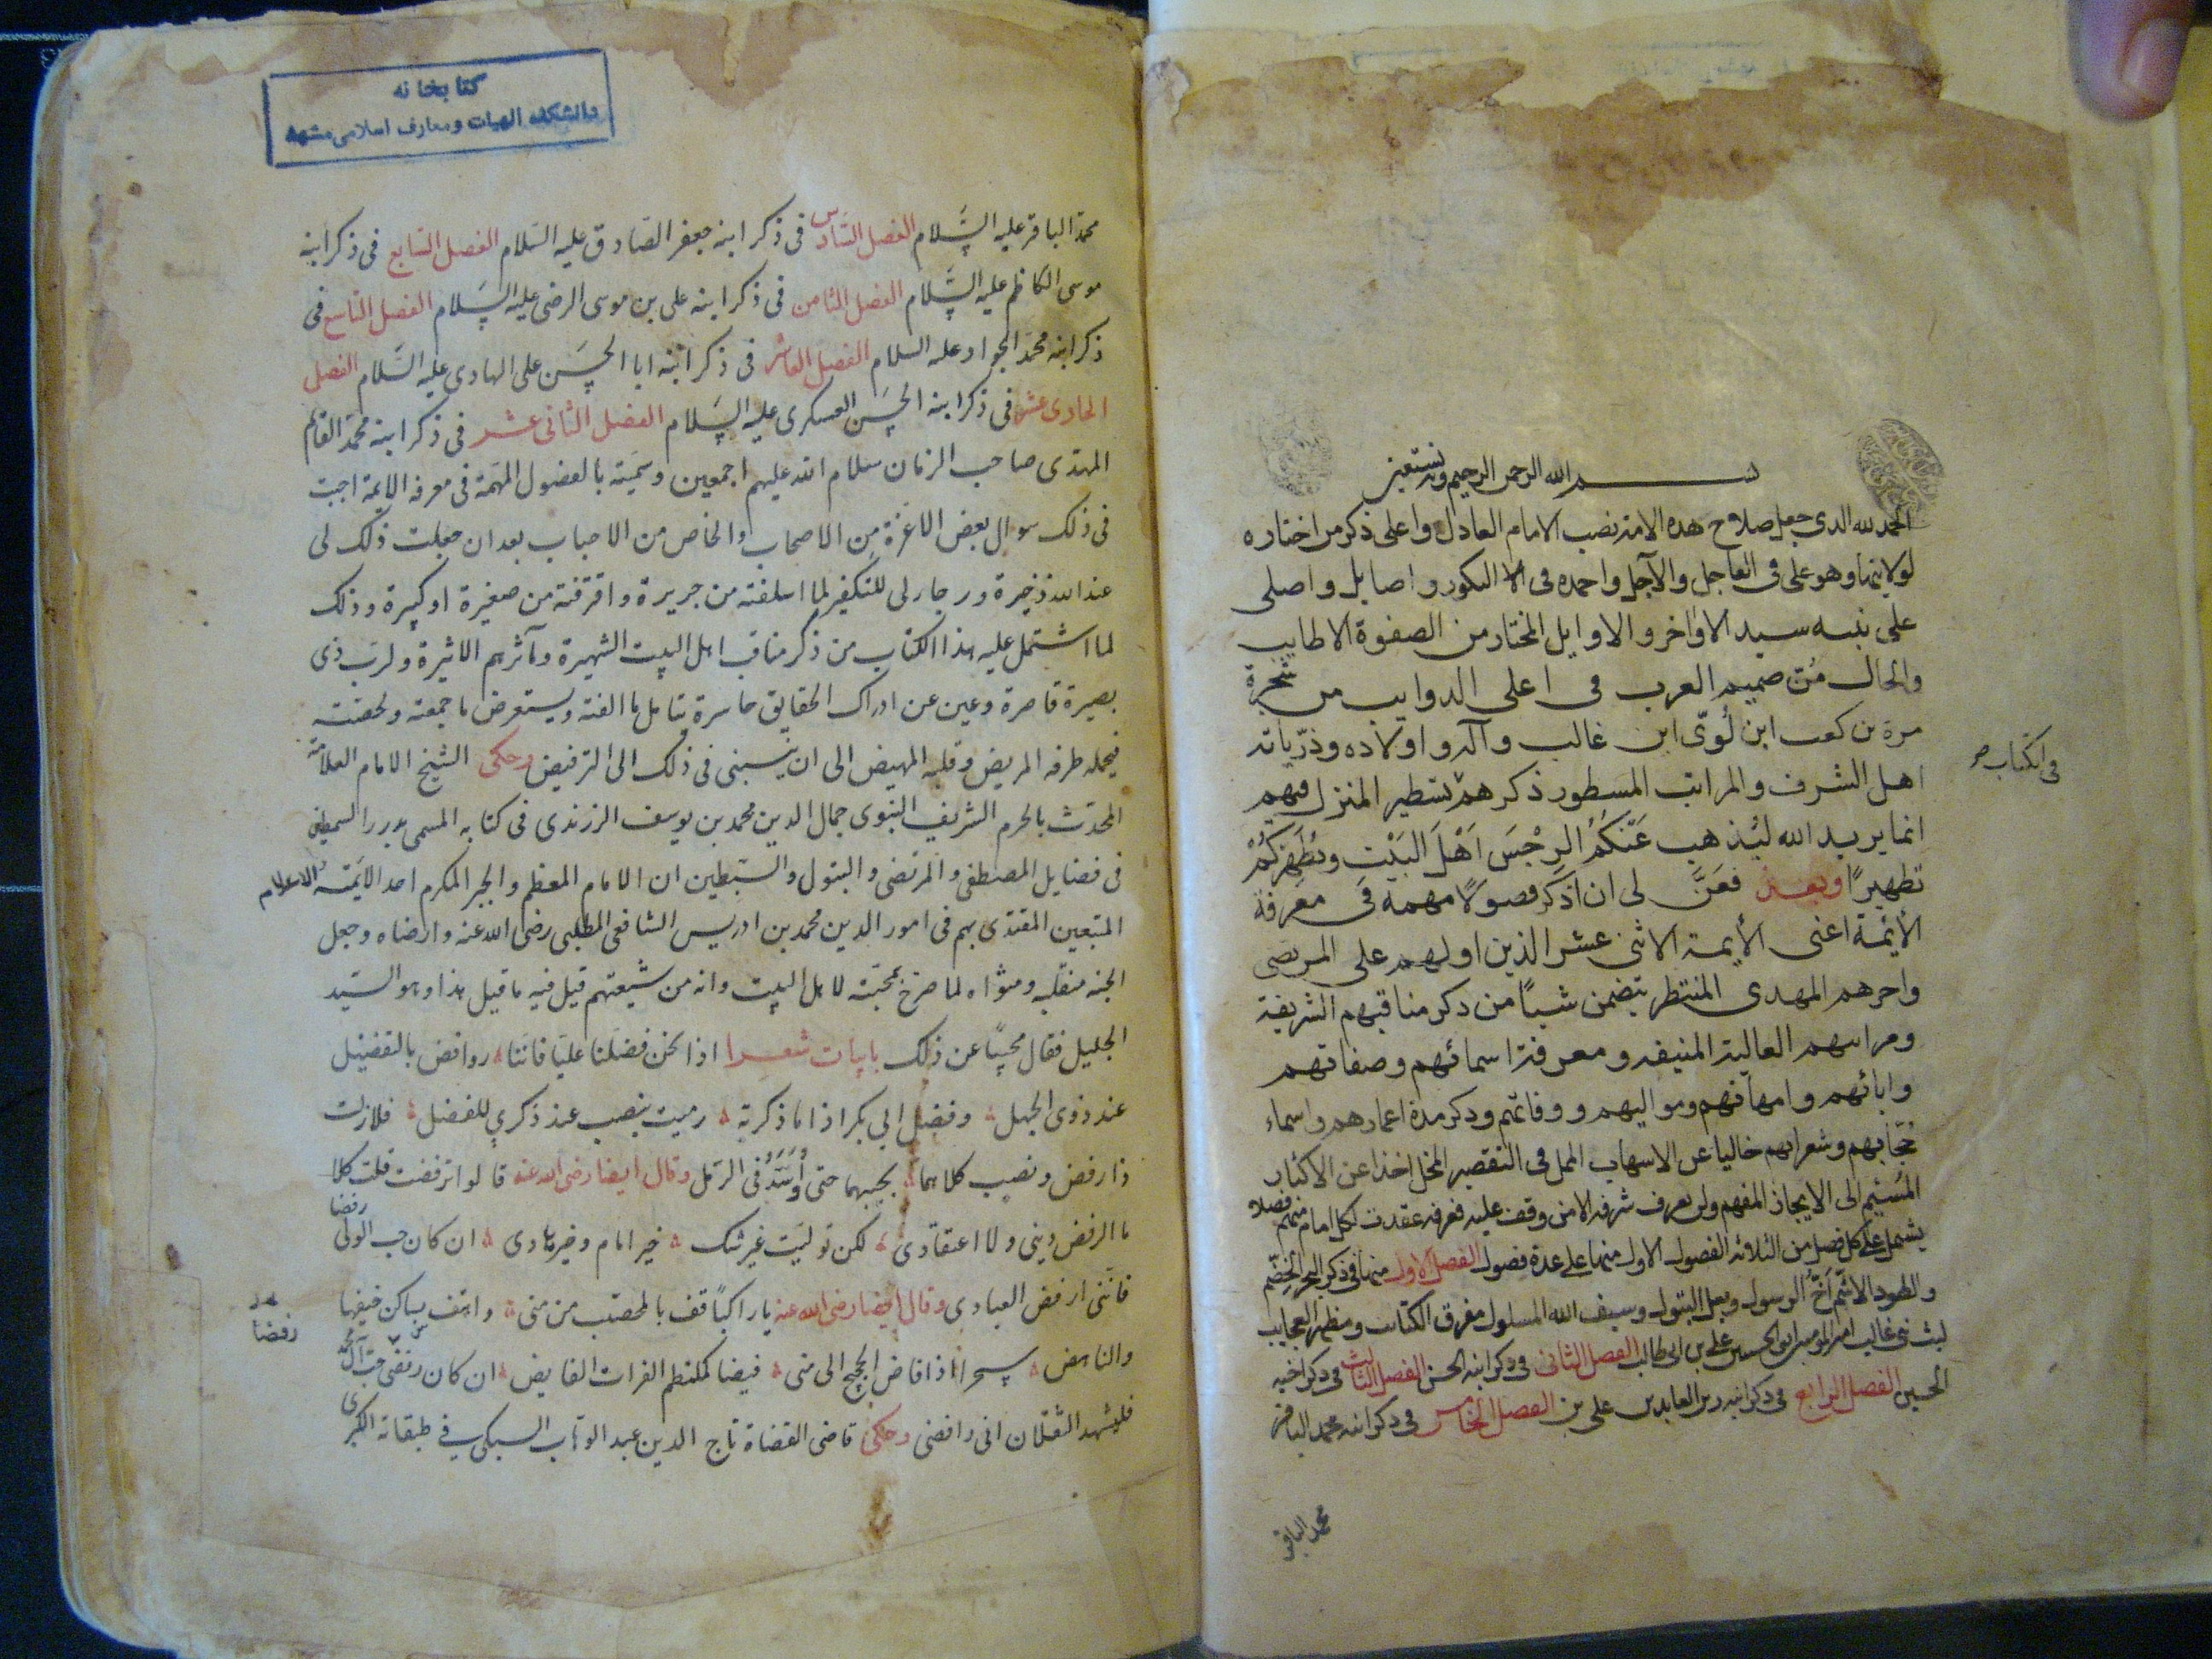 بســـم الله الرحمن الرحيم وبه نستعين
الحمد لله الدى جعل صلاح هده الامة نصب الامام العادل واعلى ذكر من اختاره
لولايتها وهو على فى العاجل والآجل واحمده فى البكور واصايل واصلى
على نبيه سيد الاواخر والاوايل المختار من الصفوة الاطايب
والحال من صميم العرب فى اعلى الدوايب من شجرة
مرة بن كعب ابن لُوىّ ابن غالب وآله واولاده وذرّياته
اهل الشرف والمراتب المسطور ذكرهم بتسطير المنزل فيهم
فى الكتاب
انما يريد الله ليُذهب عَنْكُمُ الرِجْسَ اَهْلَ البَيْت ويُطَهِرَكُمْ
تطهيرًا وبعد فعَنَّ لى ان اذكر فصولًا مهمة فى معرفة
الأئمة اعنى الأيمة الاثنى عشر الذين اولهم على المرتضى
واخرهم المهدى المنتظر يتضمن شيأً من ذكر مناقبهم الشريفة
ومراتبهم العالية المنيفه ومعرفة اسمائهم وصفاتهم
وابائهم وامهاتهم ومواليهم ووفاتهم وذكر مدة اعمارهم واسماء
حُجّابهم وشعرائهم خاليا عن الاسهاب الممل فى التقصير المخل اخذا عن الاكثار
المُسئِم الى الايجاز المفهم ولن يعرف شرفه الا من وقف عليه فعرفه عقدت لكل امام منهم فصلا
يشمل على كل فصل من الثلاثة الفصول الاول منها على عدة فصول الفصل الاول منها فى ذكر البحر الخِضَم
والطود الاشمّ اَخ الرسول وبعل البتول وسيف الله المسلول مفرق الكتائب ومظهر العجايب
ليث بنى غالب امير المومنين ابى الحسين على بن ابى طالب الفصل الثانى فى ذكر ابنه الحسن الفصل الثالث فى ذكر اخيه
الحسين الفصل الرابع فى ذكر ابنه زين العابدين على بن الفصل الخامس فى ذكر ابنه محمد الباقر
محمد الباقر
كتابخانه
دانشكده الهيات ومعارف اسلامى مشهد
محمّد الباقر عليه السَّلام الفصل السّادس فى ذكر ابنه جعفر الصّادق عليه السّلام الفصل السّابع فى ذكر ابنه
موسى الكاظم عليه السَّلام الفصل الثامن فى ذكر ابنه على بن موسى الرضى عليه السَّلام الفصل التاسع فى
ذكر ابنه محمّد الجواد عليه السلام الفصل العاشر فى ذكر ابنه ابا الحسَن على الهادى عليه السَّلام الفصل
الحادى عشر فى ذكر ابنه الحسَن العسكرى عليه السَّلام الفصل الثانى عشر فى ذكر ابنه محمّد القائم
المهتدى صاحب الزمان سلام الله عليهم اجمعين وسمّيته بالفصول المهّمة فى معرفه الايمة اجبت
فى ذلك سوال بعض الاعّزة من الاصحاب والخاص من الاحباب بعد ان جعلت ذلك لى
عند الله ذخيرة ورجا لى للتكفير لما اسلفته من جريرة واقترفته من صغيرة او كبيرة وذلك
لما اشتمل عليه هذا الكتاب من ذكر مناقب اهل البيت الشهيرة ومآثرهم الاثيرة ولرب ذى
بصيرة قاصرة وعين عن ادراك الحقايق حاسرة يتامل ما الفته ويستعرض ما جمعته ولخصته
فيحمله طرفه المريض وقلبه المهيض الى ان ينسبنى فى ذلك الى الترفيض وحكى الشيخ الامام العلامة
المحدث بالحرم الشريف النبوى جمال الدين محمد بن يوسف الزرندى فى كتابه المسمى بدرر السمطين
فى فضايل المصطفى والمرتضى والبتول والسّبطين ان الامام المعظم والحبر المكرم احد الائمّة الاعلام
المتبعين المقتدى بهم فى امور الدين محمد بن ادريس الشافعى المطلبى رضى الله عنه وارضاه وجعل
الجنه منقلبه ومثواه لما صرح بمحبّته لاهل البيت وانه من شيعتهم قيل فيه ما قيل هذا وهو السّيد
الجليل فقال مجيبًا عن ذلك بابيات شعرا اذا نحن فضلنا عليّا فاننا روافض بالتفضيل
عند ذوى الجهل وفضل ابى بكر اذا ما ذكرته رميت بنصب عند ذكرى للفضل فلا زلت
ذا رفض ونصب كلاهما بحبيهما حتى اُوَسَّدُ فى الرّمل وقال ايضا رضى الله عنه قالوا ترفضت قلت كلا
ما الرفض دينى ولا اعتقادى لكن توليّت غير شك خير امام وخير هادى ان كان حب الولى رفضا
فاننى ارفض العبادى وقال ايضا رضى الله عنه يا راكبًا قف بالمحصّب من منى واهتف بساكن خيفها
رفضا
والناهض سحرا اذا فاض الحجيج الى منى فيضا كملتطم الفرات الفايض ان كان رفض حب آل محمّد
فليشهد الثقلان انى رافضى وحكى قاضى القضاة تاج الدين عبد الوهاب السبكى فى طبقاته الكبرى